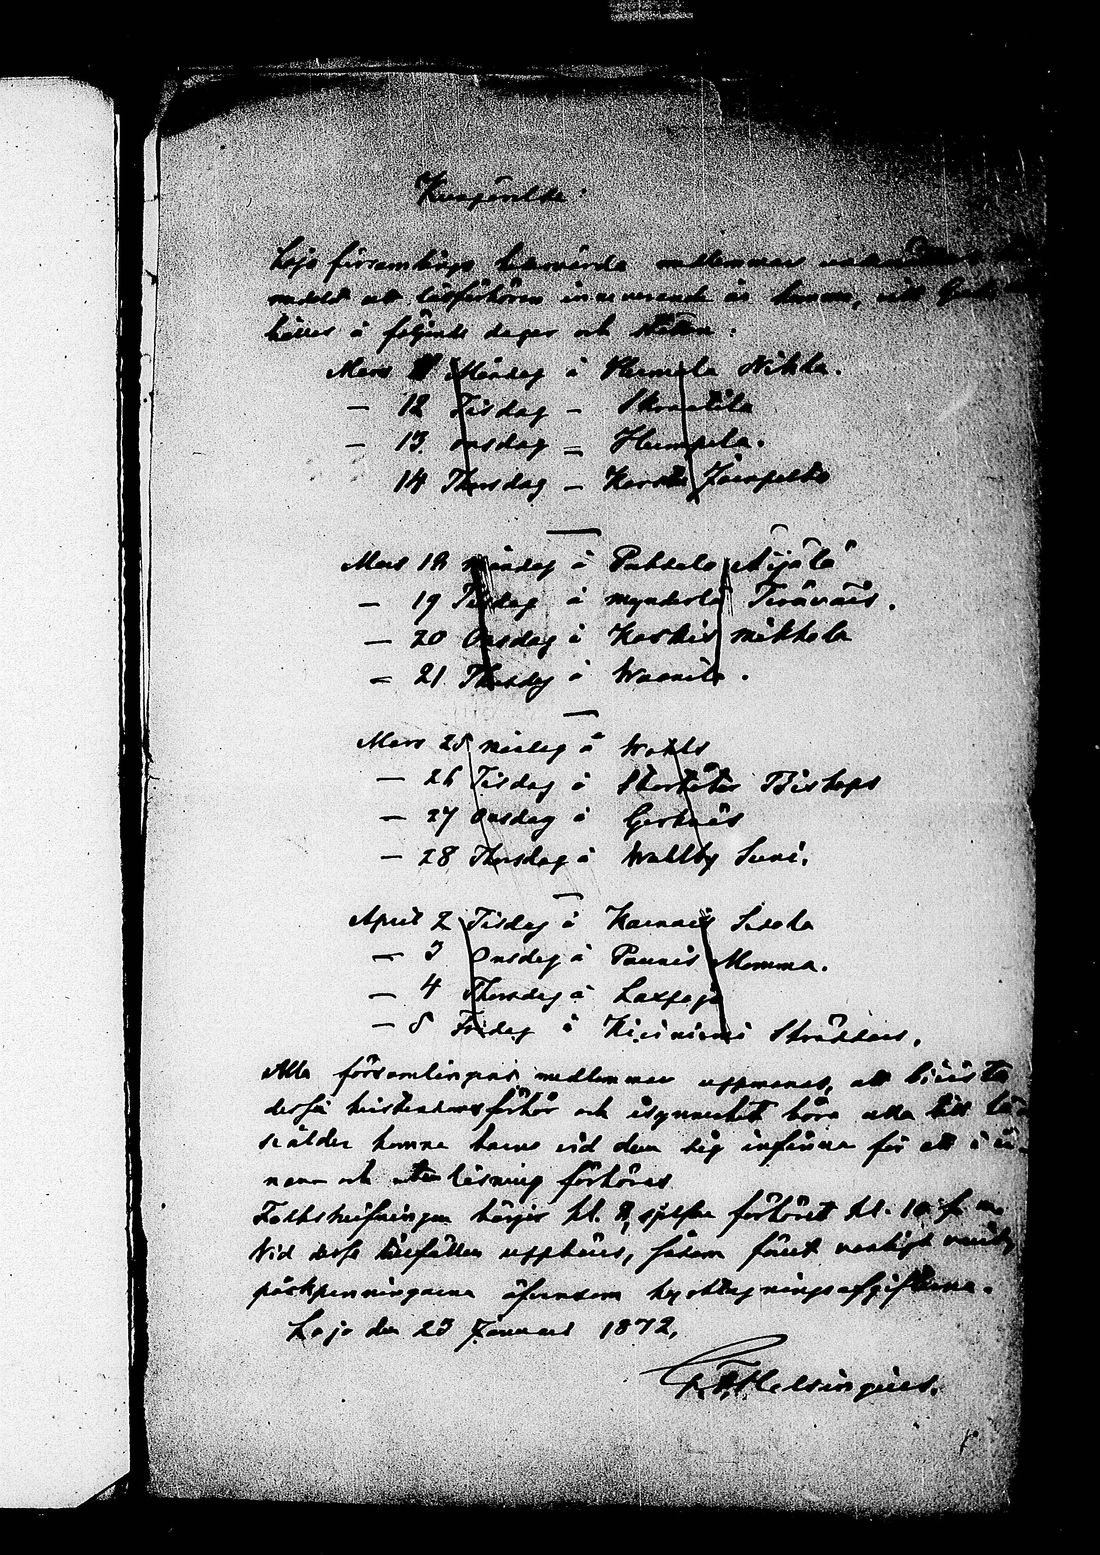 Kungörelse:
Lojo församlings hedervärda medlemmar
meddelas att läsförhören innevarande år komma, vill Gud
hållas å följande dagar och ställen:
Mars 11 Måndag å Hermala Nikka.
— 12 Tisdag – Skraatila
— 13 onsdag = Humpela.
14 Thorsdag – Karstu Jönspelto
Mars 18 måndag å Pahkela Aijälä
— 19 Tisdag å mynderlä Teräväis.
— 20 Onsdag å Koskis mikkola
= 21 Thorsdag å Waanila.
Mars 25 måndag å Wohls
— 26 Tisdag å Storkiter Biskops
— 27 onsdag å Gerknäs
— 28 Thorsdag å Wahlby Suni.
April 2 Tisdag å Karnais Seuda
— 3 Onsdag å Paunis Momma.
— 4 Thorsdag å Laxpojo
— 5 Fredag å Kirkniemi Skräddars.
Alla församlingens medlemmar uppmanas, att bivista
dessa kristendomsförhör och isynnerhet böra alla till
ålder komna barn vid dem sig infinna för att i
nan och uti läsning förhöras
Folkskrifningen börjar kl. 8, sjelfva förhöret kl. 10 f m.
Vid dessa tillfällen uppbäras, såsom förut vanligt varit,
påskpenningarna äfvensom kyrkbygningsafgifterna.
Lojo den 23 Januari 1872.
F. Helsingius.